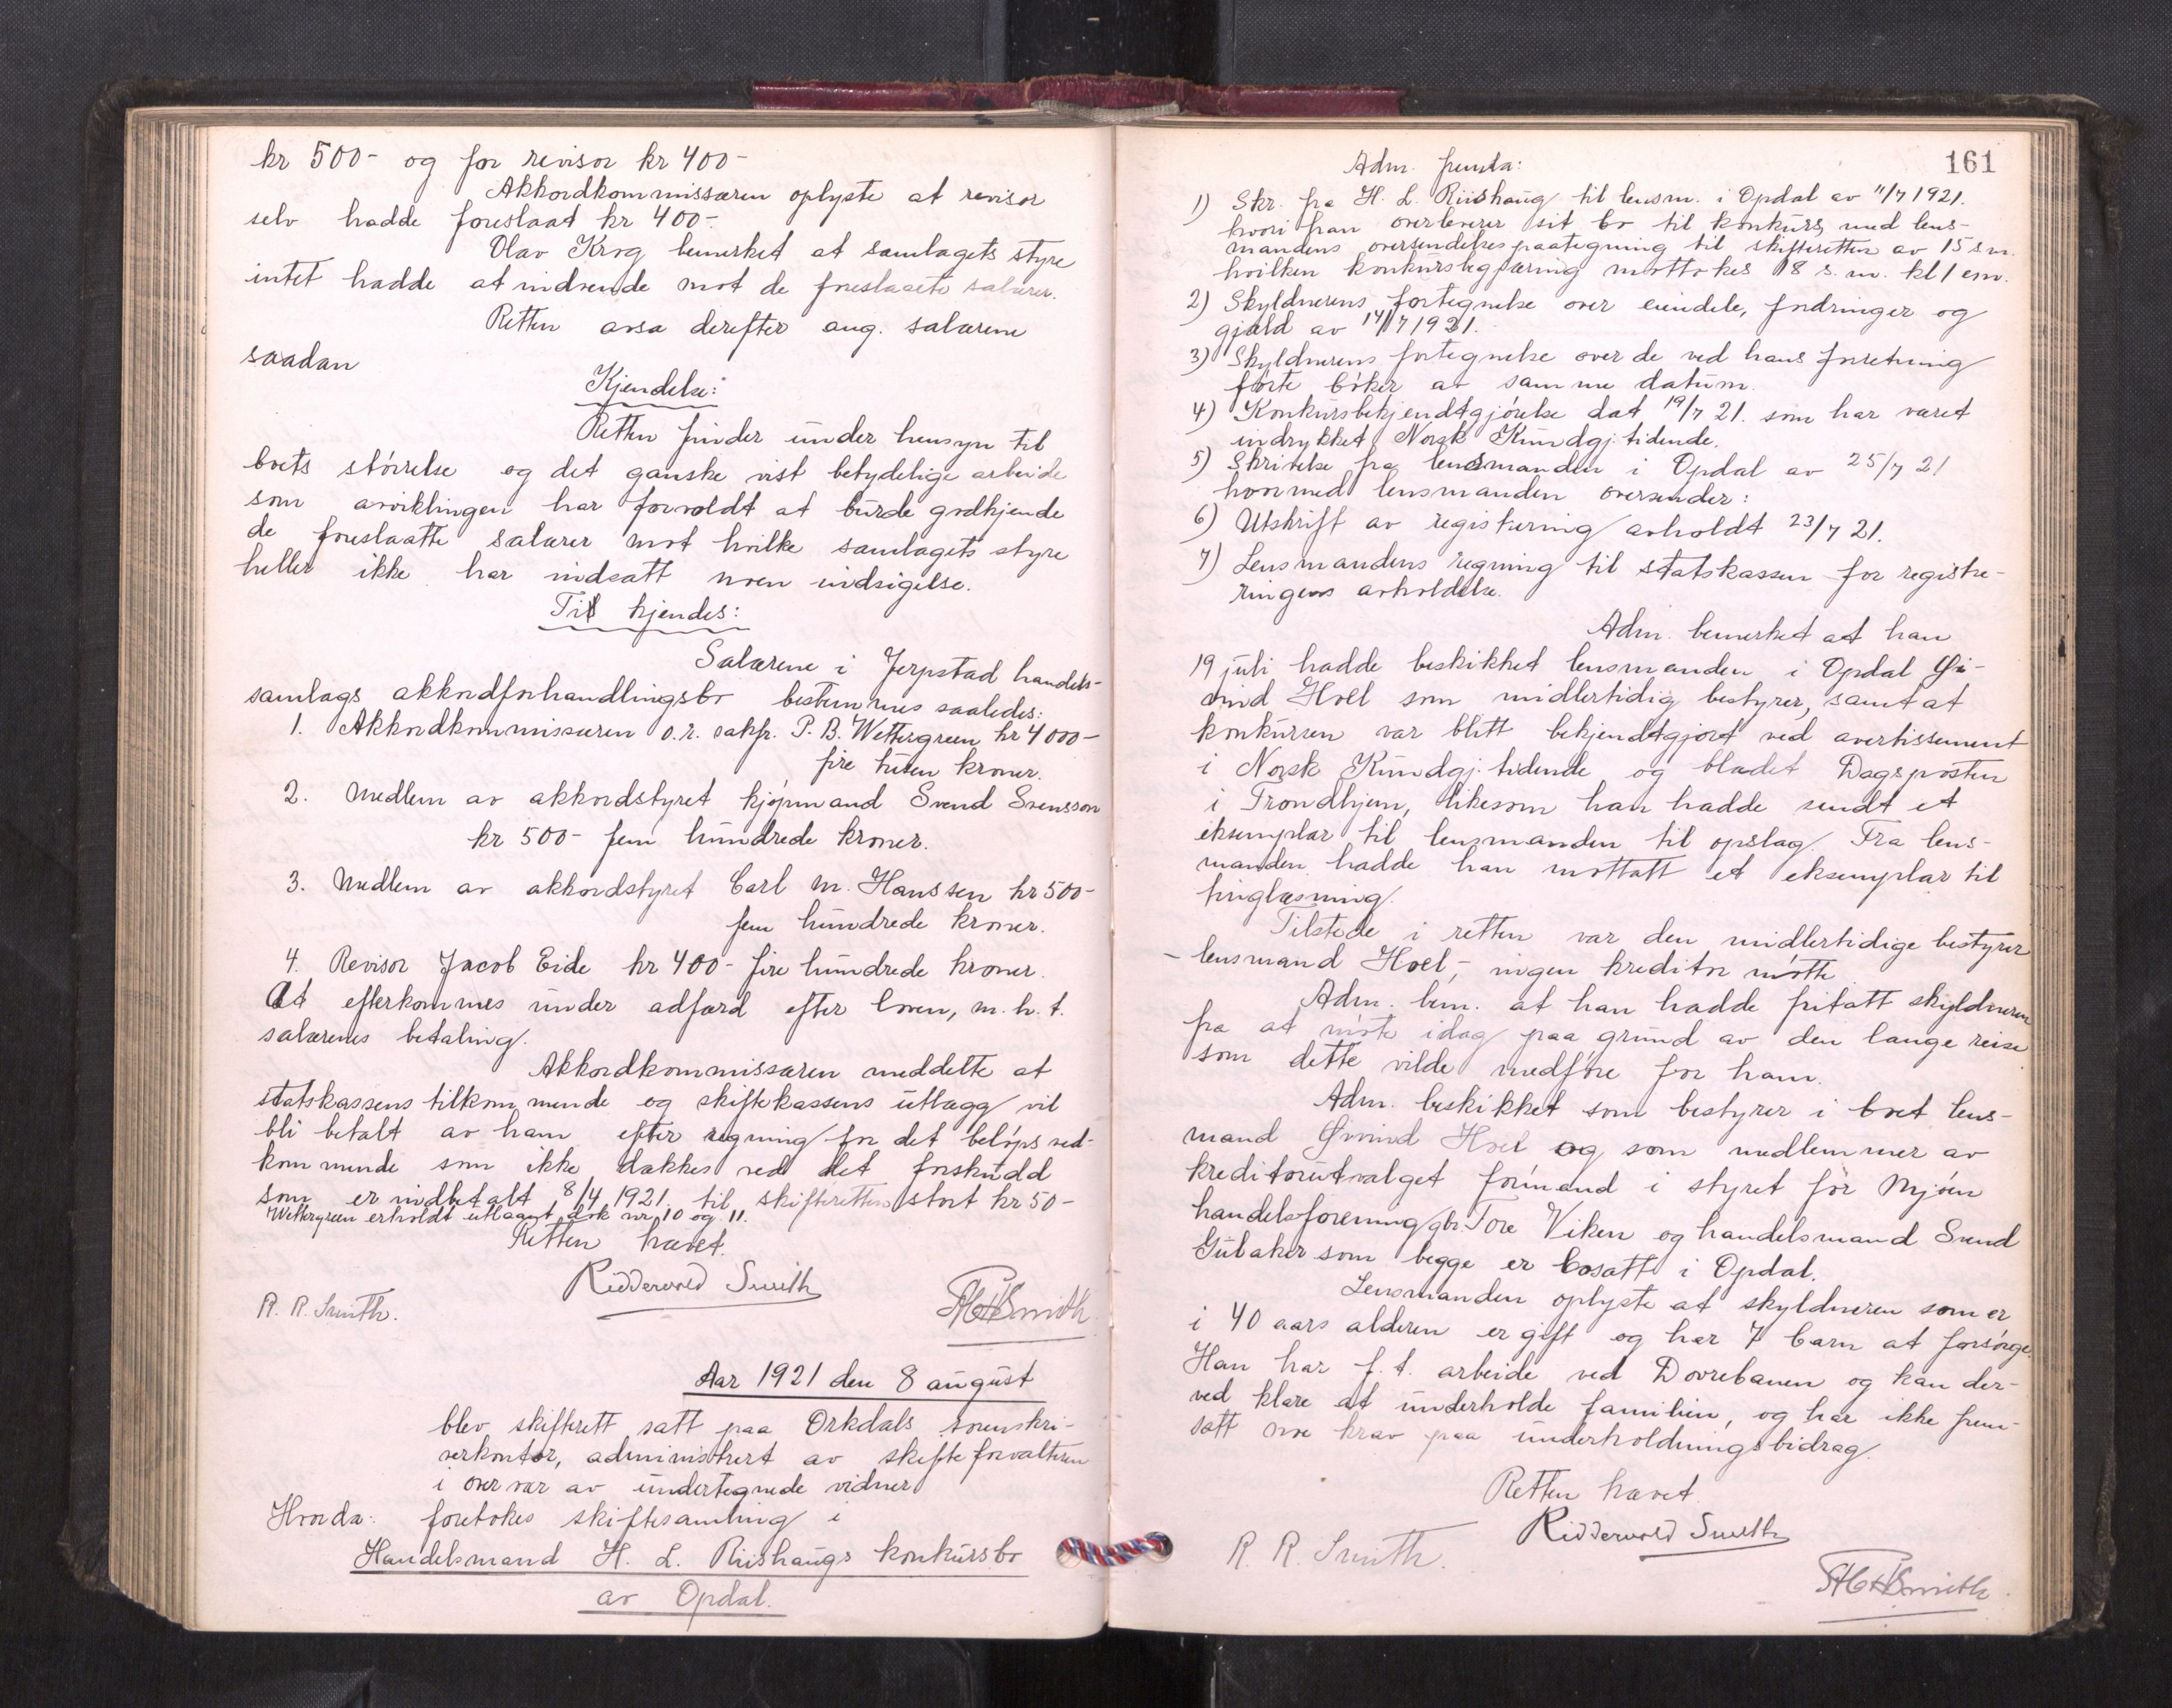 kr 500- og for revisor kr 400-
Akkordkommissæren oplyste at revisor
selv hadde foreslaat kr 400-.
Olav Krog bemerket at samlagets styre
intet hadde at indvende mot de foreslaatte salærer.
Retten avsa derefter ang. salærene
saadan
Kjendelse:
Retten finder under hensyn til
boets størrelse og det ganske vist betydelige arbeide
som avviklingen har forvoldt at burde godkjende
de foreslaatte salærer mot hvilke samlagets styre
heller ikke har indsatt noen indsigelse.
Ti kjendes:
Salærene i Jerpstad handels-
samlags akkordforhandlingsbo bestemmes saaledes:
1. Akkordkommissæren o.r. sakfr. P. B. Wettergreen kr 4000-
fire tusen kroner.
2. Medlem av akkordstyret kjøpmand Svend Svensson
kr 500- fem hundrede kroner.
3. Medlem av akkordstyret Carl M. Hanssen kr 500-
fem hundrede kroner.
4. Revisor Jacob Eide kr 400- fire hundrede kroner.
At efterkommes under adfærd efter loven, m. h. t.
salærenes betaling.
Akkordkommissæren meddelte at
statskassens tilkommende og skiftekassens utlægg vil
bli betalt av ham efter regning for det beløps ved-
kommende som ikke dækkes ved det forskudd
som er indbetalt 8/4 1921 til skifteretten stort kr 50-
Wettergreen erholdt utlaant dok nr 10 og 11.
Retten hævet.
Ridderwold Smith
R. R. Smith.
Smith
Aar 1921 den 8 august
blev skifterett satt paa Orkdals sorenskri-
verkontor, administrert av skifteforvalteren
i overvær av undertegnede vidner
Hvorda: foretokes skiftesamling i
Handelsmand H. L. Riishaugs konkursbo
av Opdal.
161
Adm. fremla:
1) Skr. fra H. L. Riishaug til lensm. i Opdal av 11/7 1921.
hvori han overleverer sit bo til konkurs, med lens-
mandens oversendelsespaategning til skifteretten av 15 s.m.
hvilken konkursbegjæring mottokes 18 s. m. kl 1 em.
2) Skyldnerens fortegnelse over eiendele, fordringer og
gjæld av 14/7 1921.
3) Skyldnerens fortegnelse over de ved hans forretning
førte bøker av samme datum.
4) Konkursbekjendtgjørelse dat 19/7 21. som har været
indrykket Norsk Kundgj. tidende.
5) Skrivelse fra lensmanden i Opdal av 25/7 21
hvormed lensmanden oversender:
6) Utskrift av registrering avholdt 23/7 21.
7) Lensmandens regning til statskassen for registre-
ringens avholdelse.
Adm. bemerket at han
19 juli hadde beskikket lensmanden i Opdal Øi-
vind Hoel som midlertidig bestyrer, samt at
konkursen var blitt bekjendtgjort ved avertissement
i Norsk Kundgj. tidende og bladet Dagsposten
i Trondhjem, likesom han hadde sendt et
eksemplar til lensmanden til opslag. Fra lens-
manden hadde han mottatt et eksemplar til
tinglæsning.
Tilstede i retten var den midlertidige bestyrer
- lensmand Hoel, - ingen kreditor møtte
Adm. bem. at han hadde fritatt skyldneren
fra at møte idag paa grund av den lange reise
som dette vilde medføre for ham.
Adm. beskikket som bestyrer i boet lens-
mand Øivind Hoel og som medlemmer av
kreditorutvalget formand i styret for Mjøen
handelsforening gbr. Tore Viken og handelsmand Svend
Gulaker som begge er bosatt i Opdal.
Lensmanden oplyste at skyldneren som er
i 40 aars alderen er gift og har 7 barn at forsørge.
Han har f. t. arbeide ved Dovrebanen og kan der-
ved klare at underholde familien, og har ikke frem-
satt noe krav paa underholdningsbidrag.
Retten hævet.
Ridderwold Smith
R. R. Smith.
Smith